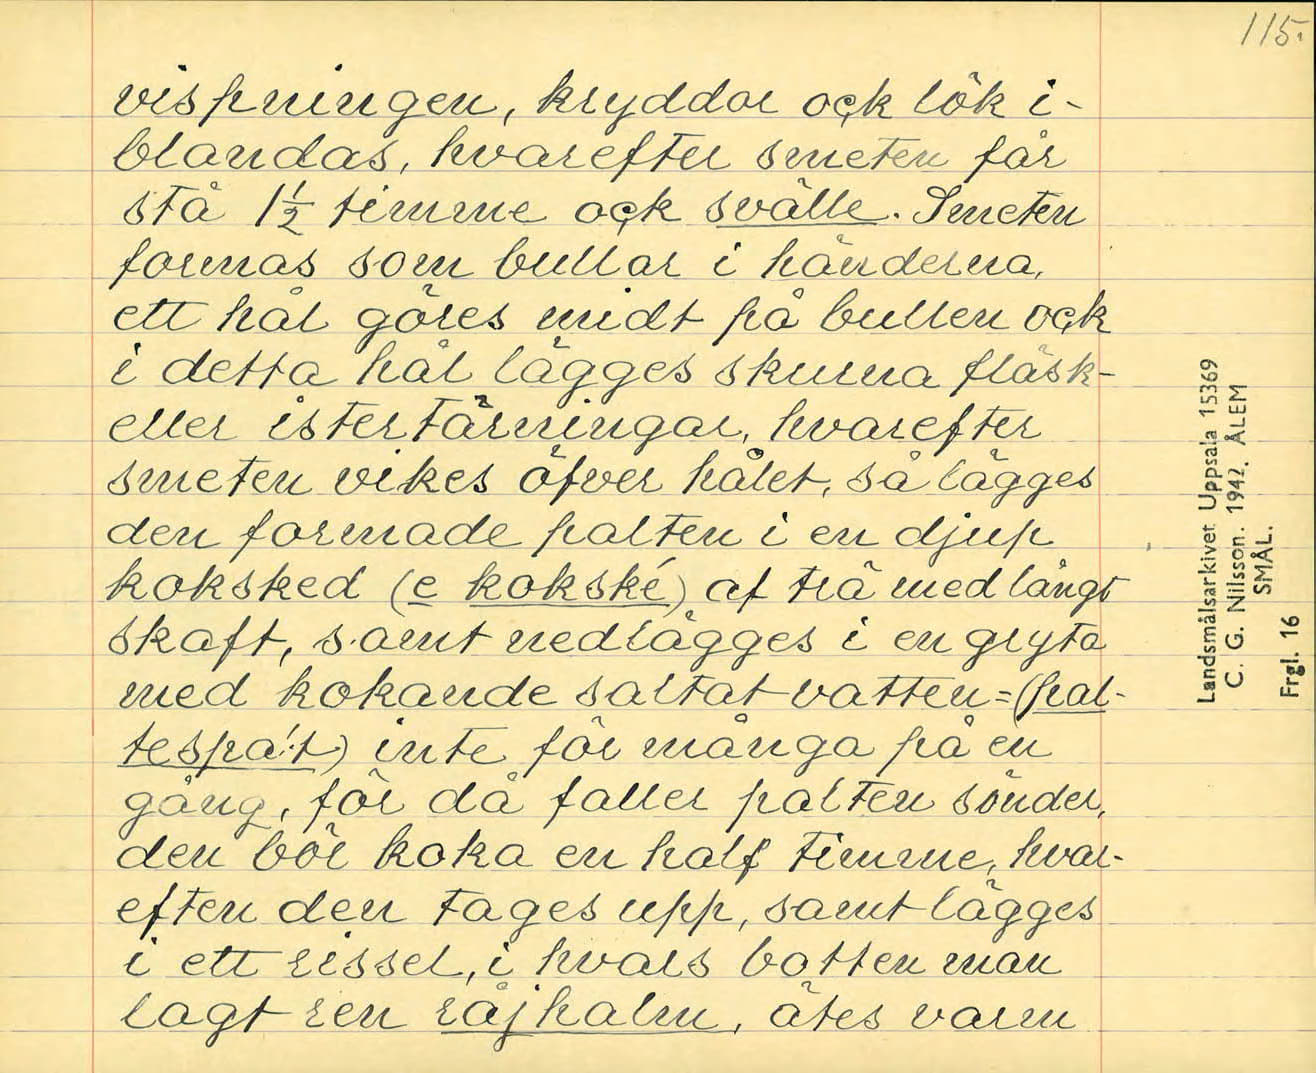 115.
vispningen, kryddor ock lök i-
blandas, hvarefter smeten får
stå 1½ timme ock svälle. Smeten
formas som bullar i händerna,
ett hål göres midt på bullen ock
i detta hål lägges skurna fläsk-
eller istertärningar, hvarefter
smeten vikes öfver hålet, så lägges
den formade palten i en djup
koksked (e kokské) af trä med långt
skaft, samt nedlägges i en gryta
med kokande saltat vatten=(pal-
tespa:t) inte för många på en
gång, för då faller palten sönder,
den bör koka en half timme, hvar-
eften den tages upp, samt lägges
i ett rissel, i hvars botten man
lagt ren råjhalm, ätes varm
Landsmålsarkivet Uppsala 15369
C. G. Nilsson. 1942. ÅLEM
SMÅL.
Frgl. 16